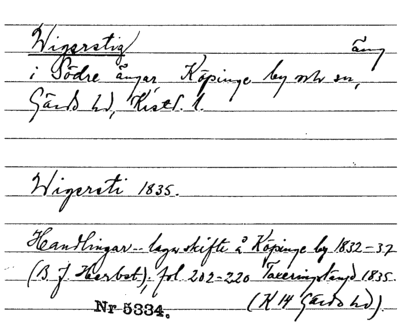 Wigerstig äng
i Södre ängar Köpinge by och sn,
Gärds hd, Krist. l.
Wigersti 1835.
Handlingar - laga skifte å Köpinge by 1832-37
(B. J. Herbst); fol. 202-220 Taxeringslängd 1835.
Nr 5334. (K 14 Gärds hd.)